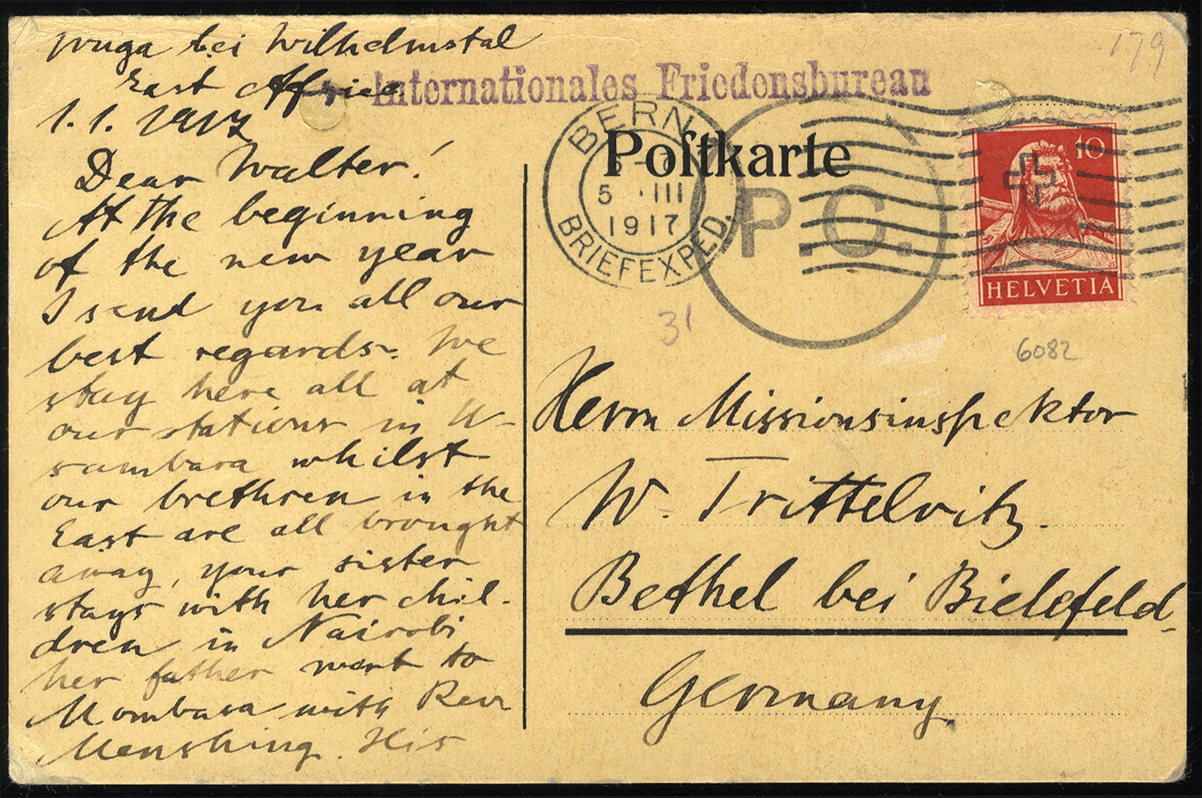 Wuga bei Wilhelmstal
East Africa
1. 1. 1917
Dear Walter!
At the beginning
of the new year
I send you all our
best regards. We
stay here all at
our stations in U-
sambara whilst
our brethren in the
East are all brought
away, your sister
stays with her chil-
dren in Nairobi,
her father went to
Mombasa with Rev.
Menshing. His
Internationales Friedensbureau
Postkarte
BERN
5 III
1917
BRIEFEXPED.
P.C.
10
HELVETIA
179
31
6082
Herrn Missionsinspektor
W. Trittelvitz.
Bethel bei Bielefeld
Germany